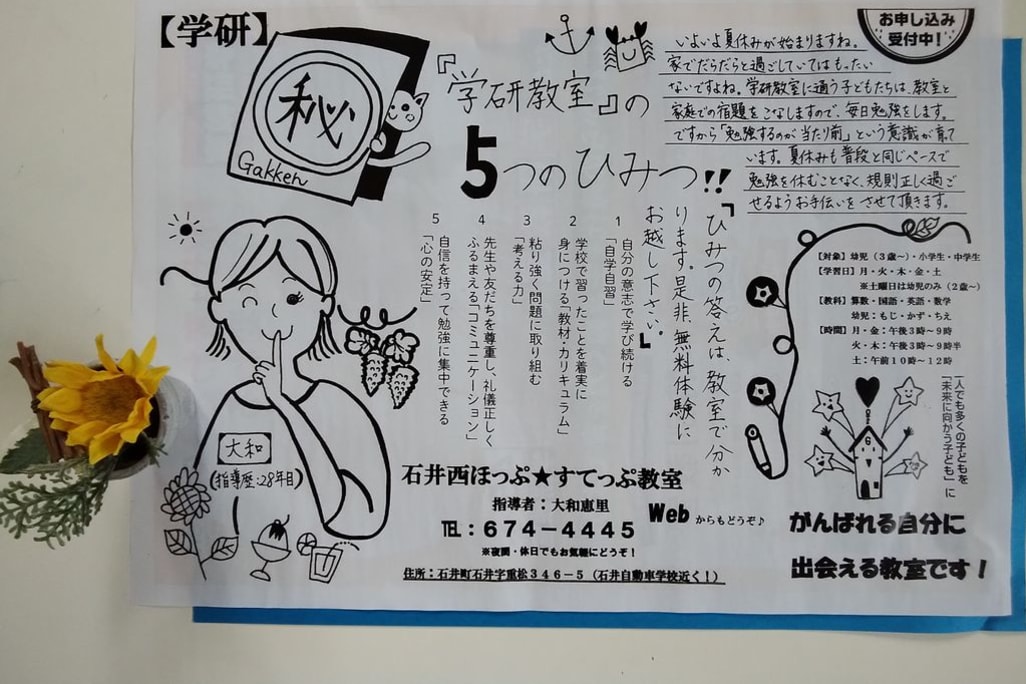 【学研】
秘
Gakken
『学研教室』の
5つのひみつ!!
お申し込み
受付中!
いよいよ夏休みが始まりますね。
家でだらだらと過ごしていてはもったい
ないですよね。学研教室に通う子どもたちは、教室と
家庭での宿題をこなしますので、毎日勉強をします。
ですから「勉強するのが当たり前」という意識が育て
います。夏休みも普段と同じペースで
勉強を休むことなく、規則正しく過ご
せるようお手伝いをさせて頂きます。
『ひみつの答えは、教室で分か
ります。是非、無料体験に
お越し下さい。』
1
自分の意志で学び続ける
「自学自習」
2
学校で習ったことを着実に
身につける「教材・カリキュラム」
3
粘り強く問題に取り組む
「考える力」
4
先生や友だちを尊重し、礼儀正しく
ふるまえる「コミュニケーション」
5
自信を持って勉強に集中できる
「心の安定」
【対象】幼児(3歳~)・小学生・中学生
【学習日】月・火・木・金・土
※土曜日は幼児のみ(2歳~)
【教科】算数・国語・英語・数学
幼児:もじ・かず・ちえ
【時間】月・金:午後3時~9時
火・木:午後3時~9時半
土:午前10時~12時
一人でも多くの子どもを
「未来に向かう子ども」に
G
大和
(指導歴:28年目)
石井西ほっぷ★すてっぷ教室
指導者:大和恵里
℡:674-4445
※夜間・休日でもお気軽にどうぞ!
Webからもどうぞ♪
住所:石井町石井字重松346-5(石井自動車学校近く!)
がんばれる自分に
出会える教室です!